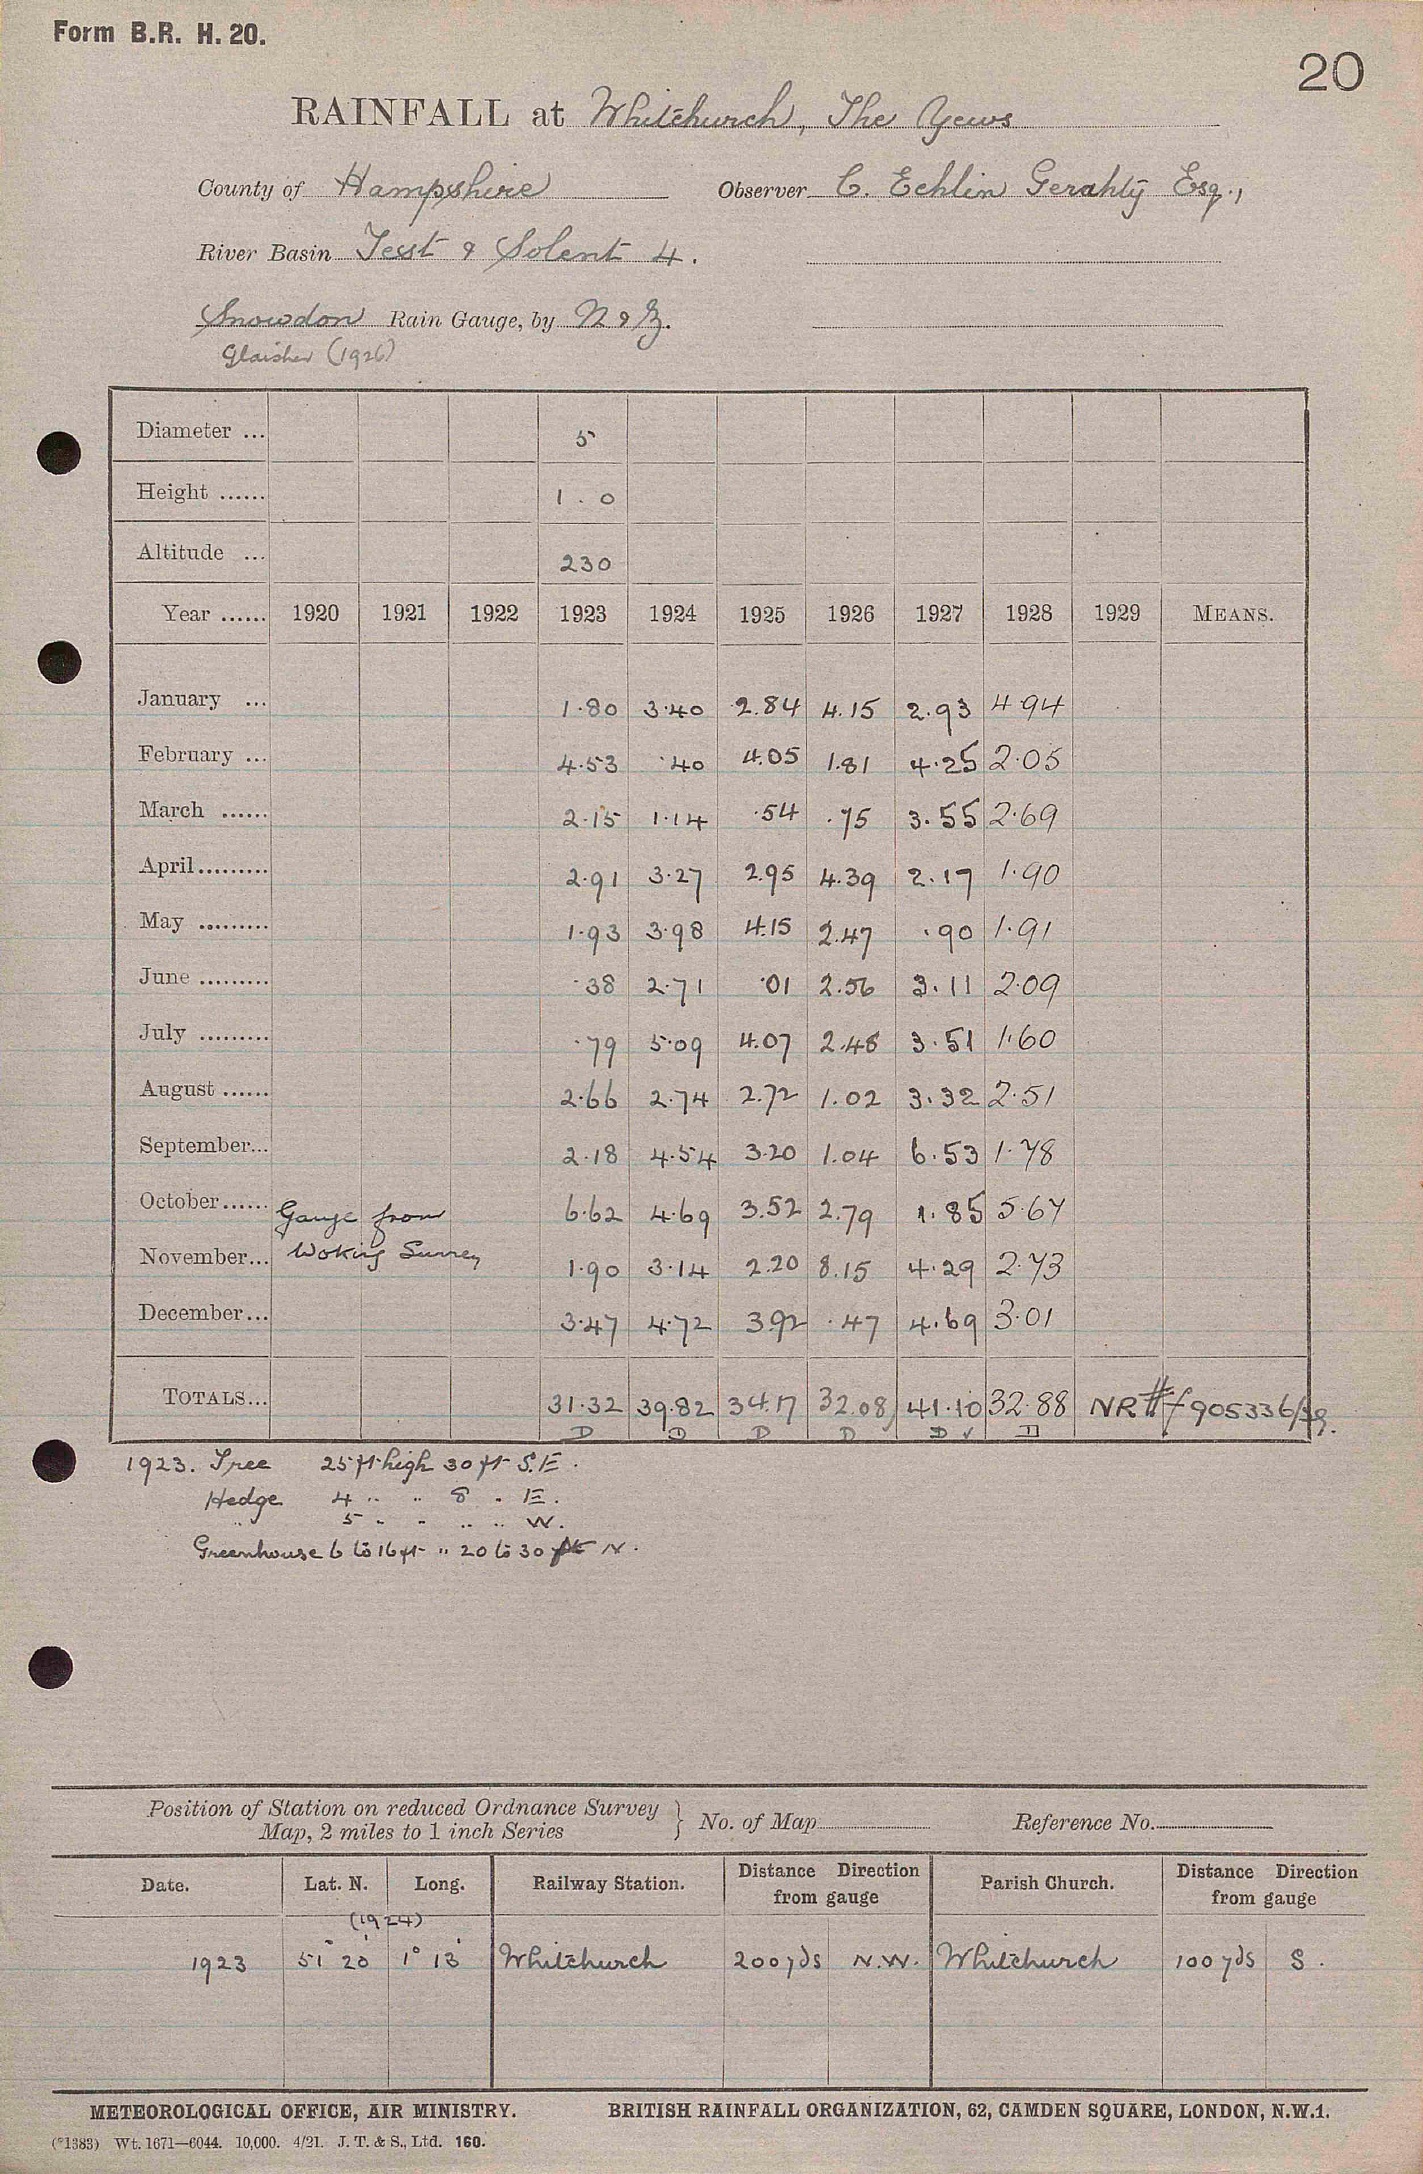 Form B.R. H. 20.
20
RAINFALL at Whitchurch, The Yews
County of Hampshire Observer C. Echlin Gerahty Esq.,
River Basin Test & Solent 4.
Snowdon Rain Gauge, by N & Z.
Glaisher (1926)
Diameter ... 5
Height ...... 1 . 0
Altitude ... 230
Year ...... 1920 1921 1922 1923 1924 1925 1926 1927 1928 1929 MEANS.
January ... 1.80 3.40 2.84 4.15 2.93 4.94
February ... 4.53 .40 4.05 1.81 4.25 2.05
March ...... 2.15 1.14 .54 .75 3.55 2.69
April......... 2.91 3.27 2.95 4.39 2.17 1.90
May ......... 1.93 3.98 4.15 2.47 .90 1.91
June ......... .38 2.71 .01 2.56 3.11 2.09
July ......... .79 5.09 4.07 2.48 3.51 1.60
August ...... 2.66 2.74 2.72 1.02 3.32 2.51
September... 2.18 4.54 3.20 1.04 6.53 1.78
October...... Gauge from 6.62 4.69 3.52 2.79 1.85 5.67
November... Woking Surrey 1.90 3.14 2.20 8.15 4.29 2.73
December... 3.47 4.72 3.92 .47 4.69 3.01
TOTALS... 31.32 39.82 34.17 32.08 41.10 32.88 NR # f 905336/
D D D D D ✓ D
1923. Tree 25 ft high 30 ft S.E.
Hedge 4 " " 8 " E.
" 5 " " " " W.
Greenhouse 6 to 16 ft " 20 to 30 ft N.
Position of Station on reduced Ordnance Survey
Map, 2 miles to 1 inch Series } No. of Map Reference No.
Date. Lat. N. Long. Railway Station. Distance Direction from gauge Parish Church. Distance Direction from gauge
(1924)
1923 51° 20' 1° 13' Whitchurch 200 yds N.W. Whitchurch 100 yds S.
METEOROLOGICAL OFFICE, AIR MINISTRY. BRITISH RAINFALL ORGANIZATION, 62, CAMDEN SQUARE, LONDON, N.W.1.
(*1383) Wt. 1671—6044. 10,000. 4/21. J. T. & S., Ltd. 160.